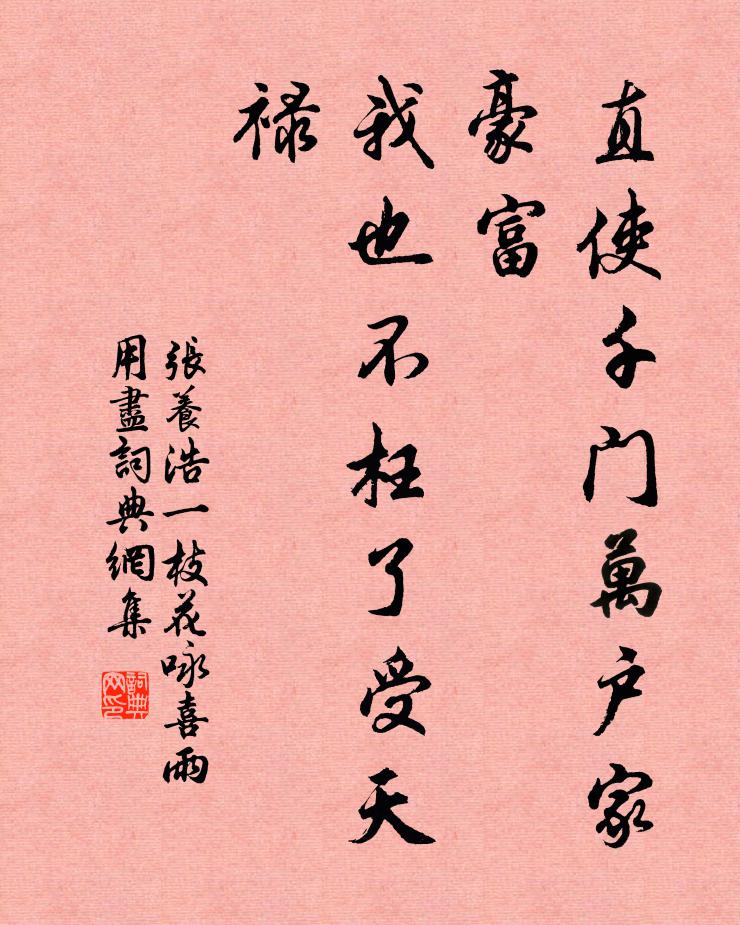 直使千门萬户家
豪富
我也不枉了受天
禄
張養浩一枝花咏喜雨
用盡詞典網集
詞典
网印